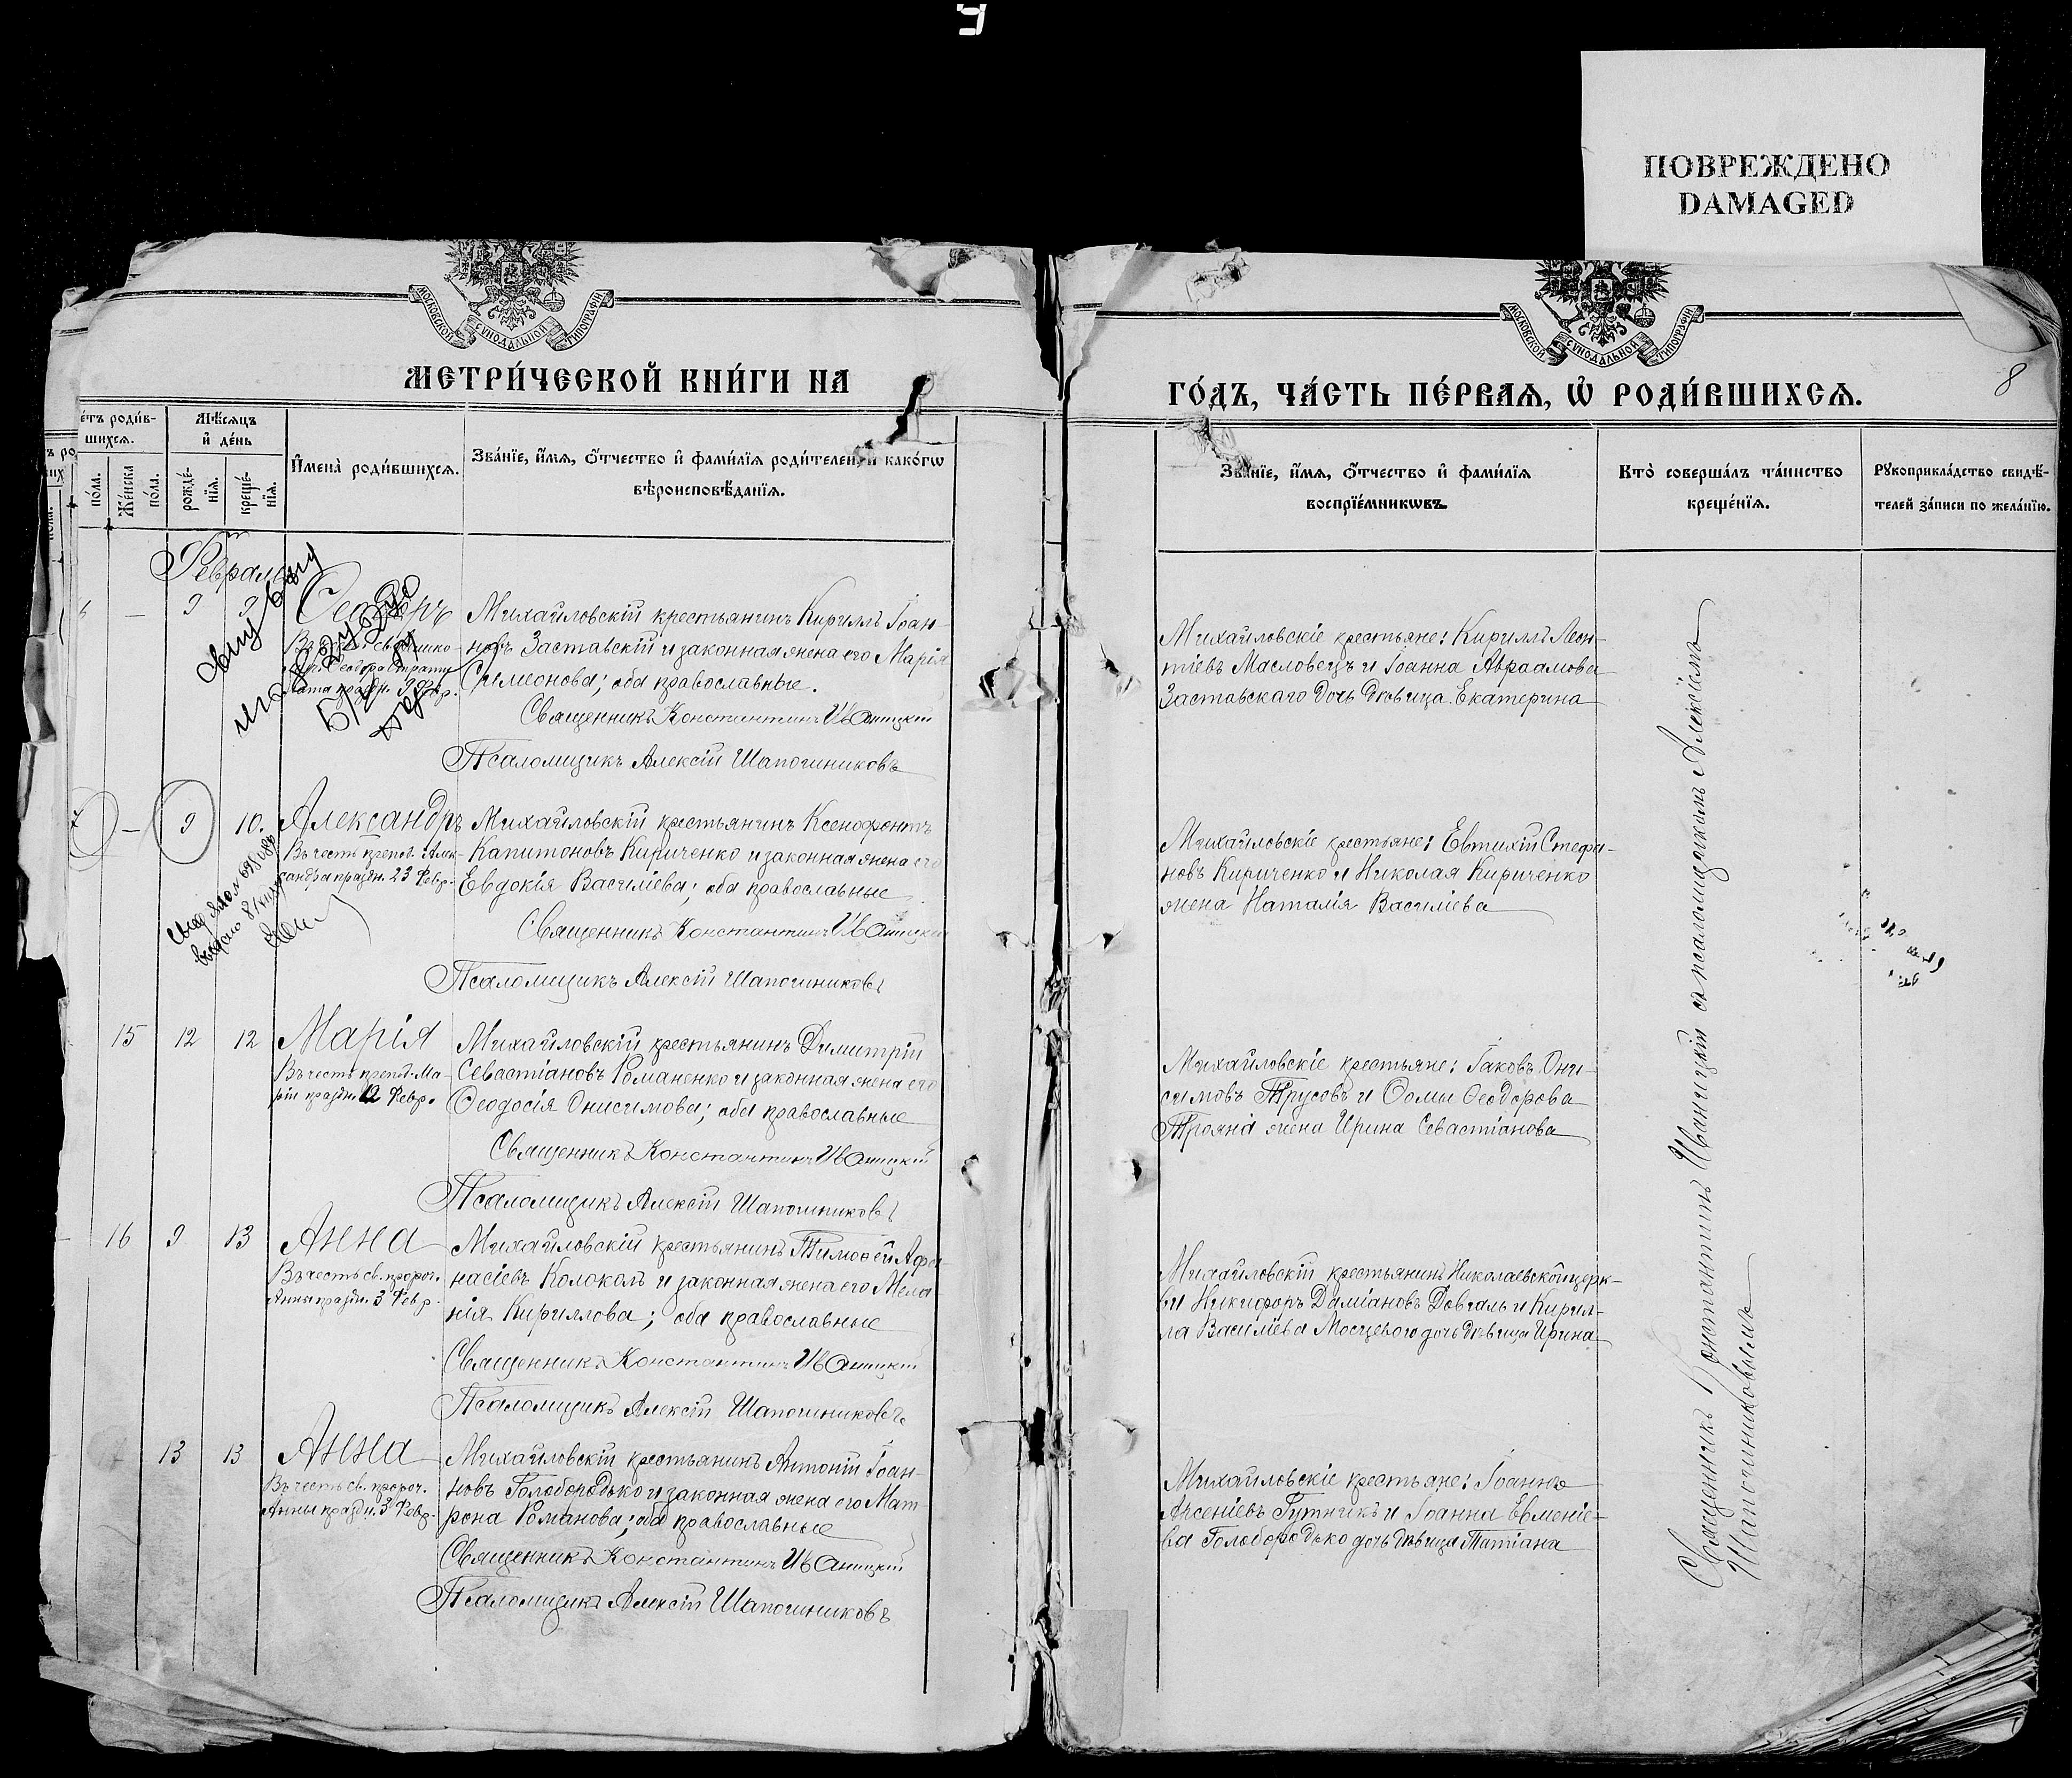 ПОВРЕЖДЕНО
DAMAGED
МОСКОВСКОЙ СѴНОДАЛЬНОЙ ТИПОГРАФІИ
МОСКОВСКОЙ СѴНОДАЛЬНОЙ ТИПОГРАФІИ
8
МЕТРИ́ЧЕСКОЙ КНИ́ГИ НА
ГО́ДЪ, ЧА́СТЬ ПЕ́РВАЯ, Ѡ РОДИ́ВШИХСЯ.
е́тъ роди́в-
шихся.
Мѣ́сяцъ
и де́нь
по́ла.
Же́нска
по́ла.
рожде́-
нїя.
креще́-
нїя.
Имена̀ роди́вшихся.
Зва́нїе, и́мя, ѻ́тчество и фами́лїя роди́телей, и како́гѡ
вѣроисповѣ́данїя.
Зва́нїе, и́мя, ѻ́тчество и фами́лїя
воспрїе́мникѡвъ.
Кто̀ соверша́лъ та́инство
креще́нїя.
Рꙋкоприкла́дство свидѣ́-
телей за́писи по жела́нїю.
Февраль
9 9 Ѳеодоръ
Михайловскій крестьянинъ Кириллъ Іоан-
новъ Заставскій и законная жена его Марія
Симеонова; оба православные.
Священникъ Константинъ Иваницкій
Псаломщикъ Алексій Шапошниковъ
Михайловскіе крестьяне: Кириллъ Леон-
тіевъ Масловецъ и Іоанна Авраамова
Заставскаго дочь дѣвица Екатерина
7 — 9 10. Александръ
Въ честь препод. Алек-
сандра праздн. 23 Февр.
Михайловскій крестьянинъ Ксенофонтъ
Капитоновъ Кириченко и законная жена его
Евдокія Василіева; оба православные
Священникъ Константинъ Иваницкій
Псаломщикъ Алексій Шапошниковъ
Михайловскіе крестьяне: Евтихій Стефа-
новъ Кириченко и Николая Кириченко
жена Наталія Василіева
15 12 12 Марія
Въ честь препод. Ма-
ріи праздн. 12 Февр.
Михайловскій крестьянинъ Димитрій
Севастіановъ Романенко и законная жена его
Ѳеодосія Онисимова; оба православные
Священникъ Константинъ Иваницкій
Псаломщикъ Алексій Шапошниковъ
Михайловскіе крестьяне: Іаковъ Они-
симовъ Трусовъ и Ѳомы Ѳеодорова
Трояна жена Ирина Севастіанова
16 9 13 Анна
Въ честь св. пророч.
Анны праздн. 3 Февр.
Михайловскій крестьянинъ Тимоѳей Аѳа-
насіевъ Колоколъ и законная жена его Мела
нія Кириллова; оба православные
Священникъ Константинъ Иваницкій
Псаломщикъ Алексій Шапошниковъ
Михайловскій крестьянинъ Николаевской церк-
ви Никифоръ Даміановъ Довгаль и Кирил-
ла Василіева дочь дѣвица Ирина
13 13 Анна
Въ честь св. пророч.
Анны праздн. 3 Февр.
Михайловскій крестьянинъ Антоній Іоан-
новъ Голобородько и законная жена его Мат-
рона Романова; оба православные
Священникъ Константинъ Иваницкій
Псаломщикъ Алексій Шапошниковъ
Михайловскіе крестьяне: Іоаннъ
Арсеніевъ Гутникъ и Іоанна Евменіе-
ва Голобородько дочь дѣвица Татіана
Священникъ Константинъ Иваницкій съ псаломщикомъ Алексіемъ
Шапошниковымъ